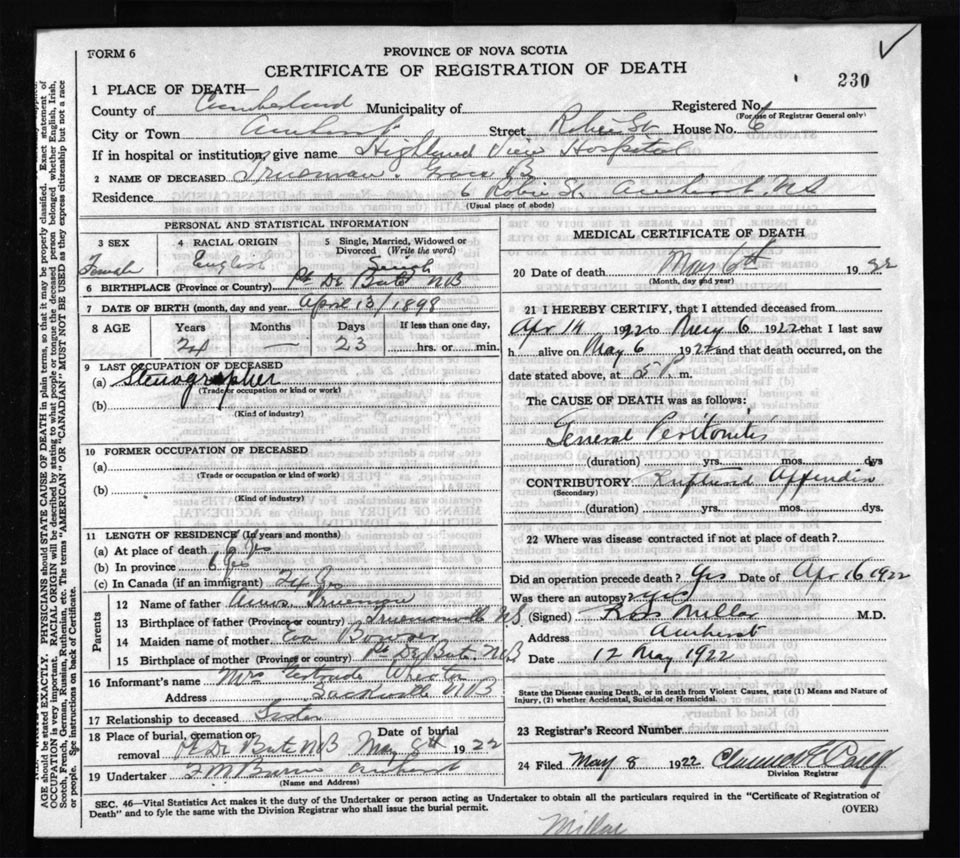 FORM 6
PROVINCE OF NOVA SCOTIA
CERTIFICATE OF REGISTRATION OF DEATH
230
1 PLACE OF DEATH—
County of Cumberland Municipality of Registered No.
(For use of Registrar General only)
City or Town Amherst Street Robie St. House No. 6
If in hospital or institution, give name Highland View Hospital
2 NAME OF DECEASED Trueman, Grace B
Residence 6 Robie St. Amherst, NS
(Usual place of abode)
PERSONAL AND STATISTICAL INFORMATION
3 SEX 4 RACIAL ORIGIN 5 Single, Married, Widowed or Divorced (Write the word)
Female English Single
6 BIRTHPLACE (Province or Country) Pt De Bute NB
7 DATE OF BIRTH (month, day and year) April 13/1898
8 AGE Years Months Days If less than one day,
24 — 23 hrs. or min.
9 LAST OCCUPATION OF DECEASED
(a) Stenographer
(Trade or occupation or kind of work)
(b)
(Kind of industry)
10 FORMER OCCUPATION OF DECEASED
(a)
(Trade or occupation or kind of work)
(b)
(Kind of industry)
11 LENGTH OF RESIDENCE (In years and months)
(a) At place of death 6 Yrs
(b) In province 6 yrs
(c) In Canada (if an immigrant) 24 Yrs
Parents
12 Name of father Amos Trueman
13 Birthplace of father (Province or country) NS
14 Maiden name of mother Eva Bowser
15 Birthplace of mother (Province or country) Pt De Bute. NB
16 Informant's name Mrs Gertrude Wheaton
Address Sackville NB
17 Relationship to deceased Sister
18 Place of burial, cremation or removal Pt De Bute NB Date of burial May 8th 1922
19 Undertaker Amherst
(Name and Address)
MEDICAL CERTIFICATE OF DEATH
20 Date of death May 6th 1922
(Month, day and year)
21 I HEREBY CERTIFY, that I attended deceased from
Apr 14 1922 to May 6 1922 that I last saw
h alive on May 6 1922 and that death occurred, on the
date stated above, at 5 P. m.
The CAUSE OF DEATH was as follows:
General Peritonitis
(duration) yrs. mos. dys
CONTRIBUTORY Ruptured Appendix
(Secondary)
(duration) yrs. mos. dys.
22 Where was disease contracted if not at place of death?
Did an operation precede death? Yes Date of Apr 16 1922
Was there an autopsy? Yes
(Signed) Millar M.D.
Address Amherst
Date 12 May 1922
State the Disease causing Death, or in death from Violent Causes, state (1) Means and Nature of
Injury, (2) whether Accidental, Suicidal or Homicidal.
23 Registrar's Record Number
24 Filed May 8 1922
Division Registrar
SEC. 46—Vital Statistics Act makes it the duty of the Undertaker or person acting as Undertaker to obtain all the particulars required in the "Certificate of Registration of
Death" and to fyle the same with the Division Registrar who shall issue the burial permit. (OVER)
Millar
AGE should be stated EXACTLY. PHYSICIANS should STATE CAUSE OF DEATH in plain terms, so that it may be properly classified. Exact statement of
OCCUPATION is very important. RACIAL ORIGIN will be described by stating to what people or tongue the deceased person belonged whether English, Irish,
Scotch, French, German, Russian, Ruthenian, etc. The terms "AMERICAN" OR "CANADIAN" MUST NOT BE USED as they express citizenship but not a race
or people. See instructions on back of Certificate.